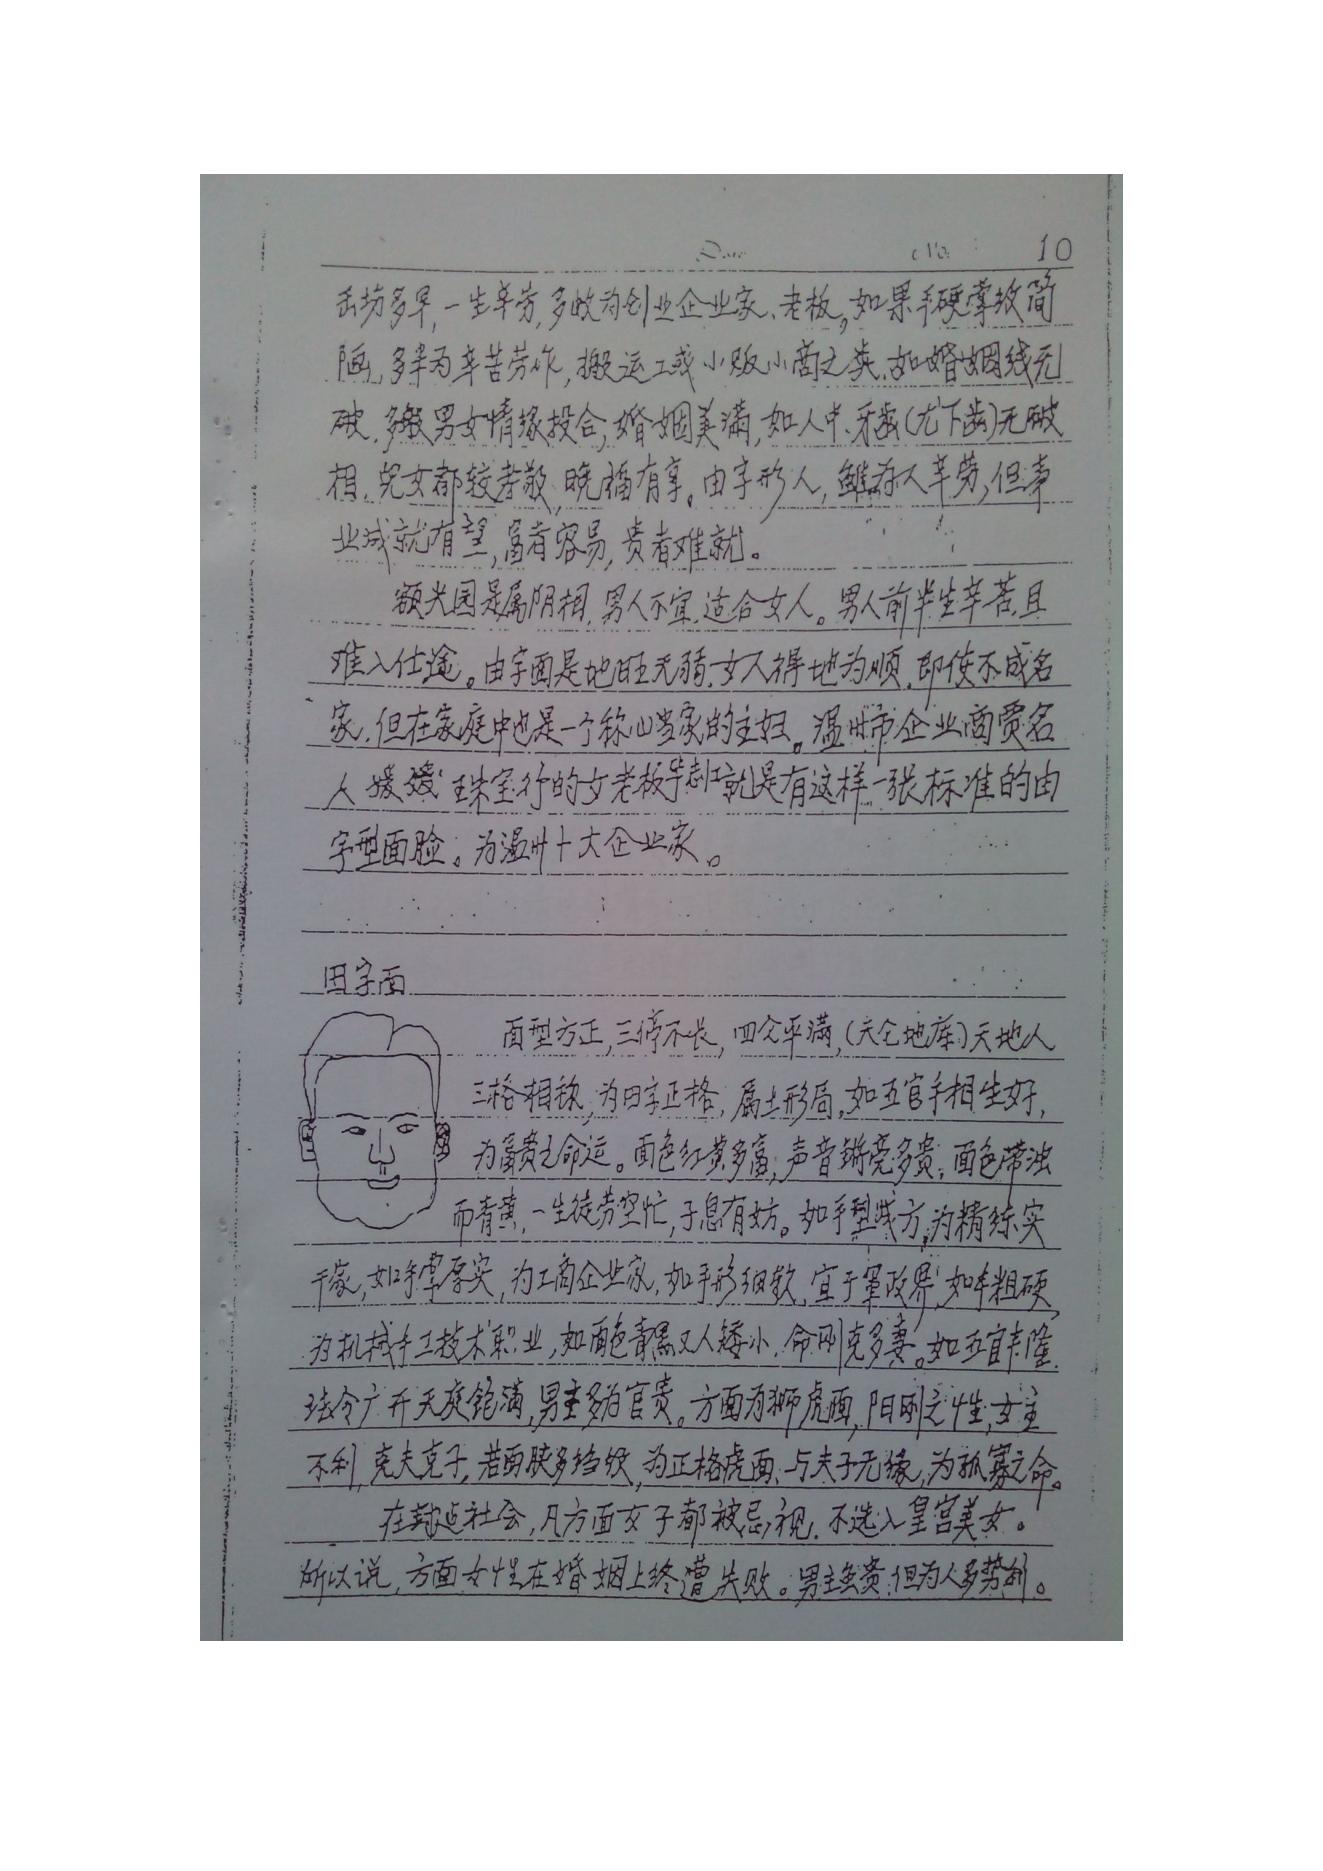 No. 10
多早,一生辛劳,多数为创业企业家、老板。如果手硬掌纹简
陋,多半为辛苦劳作,搬运工或小贩小商之类。如婚姻线无
破,多数男女情缘投合,婚姻美满,如人中、牙齿(尤下齿)无破
相,儿女都较孝敬,晚福有享。由字形人,虽存人辛劳,但事
业成就有望,富者容易,贵者难就。
额尖园是属阴相,男人不宜,适合女人。男人前半生辛苦,且
难入仕途。由字面是地旺无弱,女人得地为顺,即使不成名
家,但在家庭中也是一个称心当家的主妇。温州市企业商贾名
人媛媛珠宝行的女老板 就是有这样一张标准的由
字型面脸。为温州十大企业家。
田字面
面型方正,三停不长,四仓平满,(天仓地库)天地人
三格相称,为田字正格,属土形局,如五官手相生好,
为富贵之命运。面色红黄多富,声音锵亮多贵;面色带浊
而青黄,一生徒劳空忙,子息有妨。如手型浅方,为精练实
干家,如手掌厚实,为工商企业家,如手形细软,宜于军政界,如手粗硬,
为机械手工技术职业,如面色青黑又人矮小,命刚克多妻。如五官丰隆,
法令广开天庭饱满,男主多为官贵。方面为狮虎面,阳刚之性,女主
不利,克夫克子,若面肤多 纹,为正格虎面,与夫子无缘,为孤寡之命。
在封建社会,凡方面女子都被忌视,不选入皇宫美女。
所以说,方面女性在婚姻上终遭失败。男主虽贵,但为人多势利。